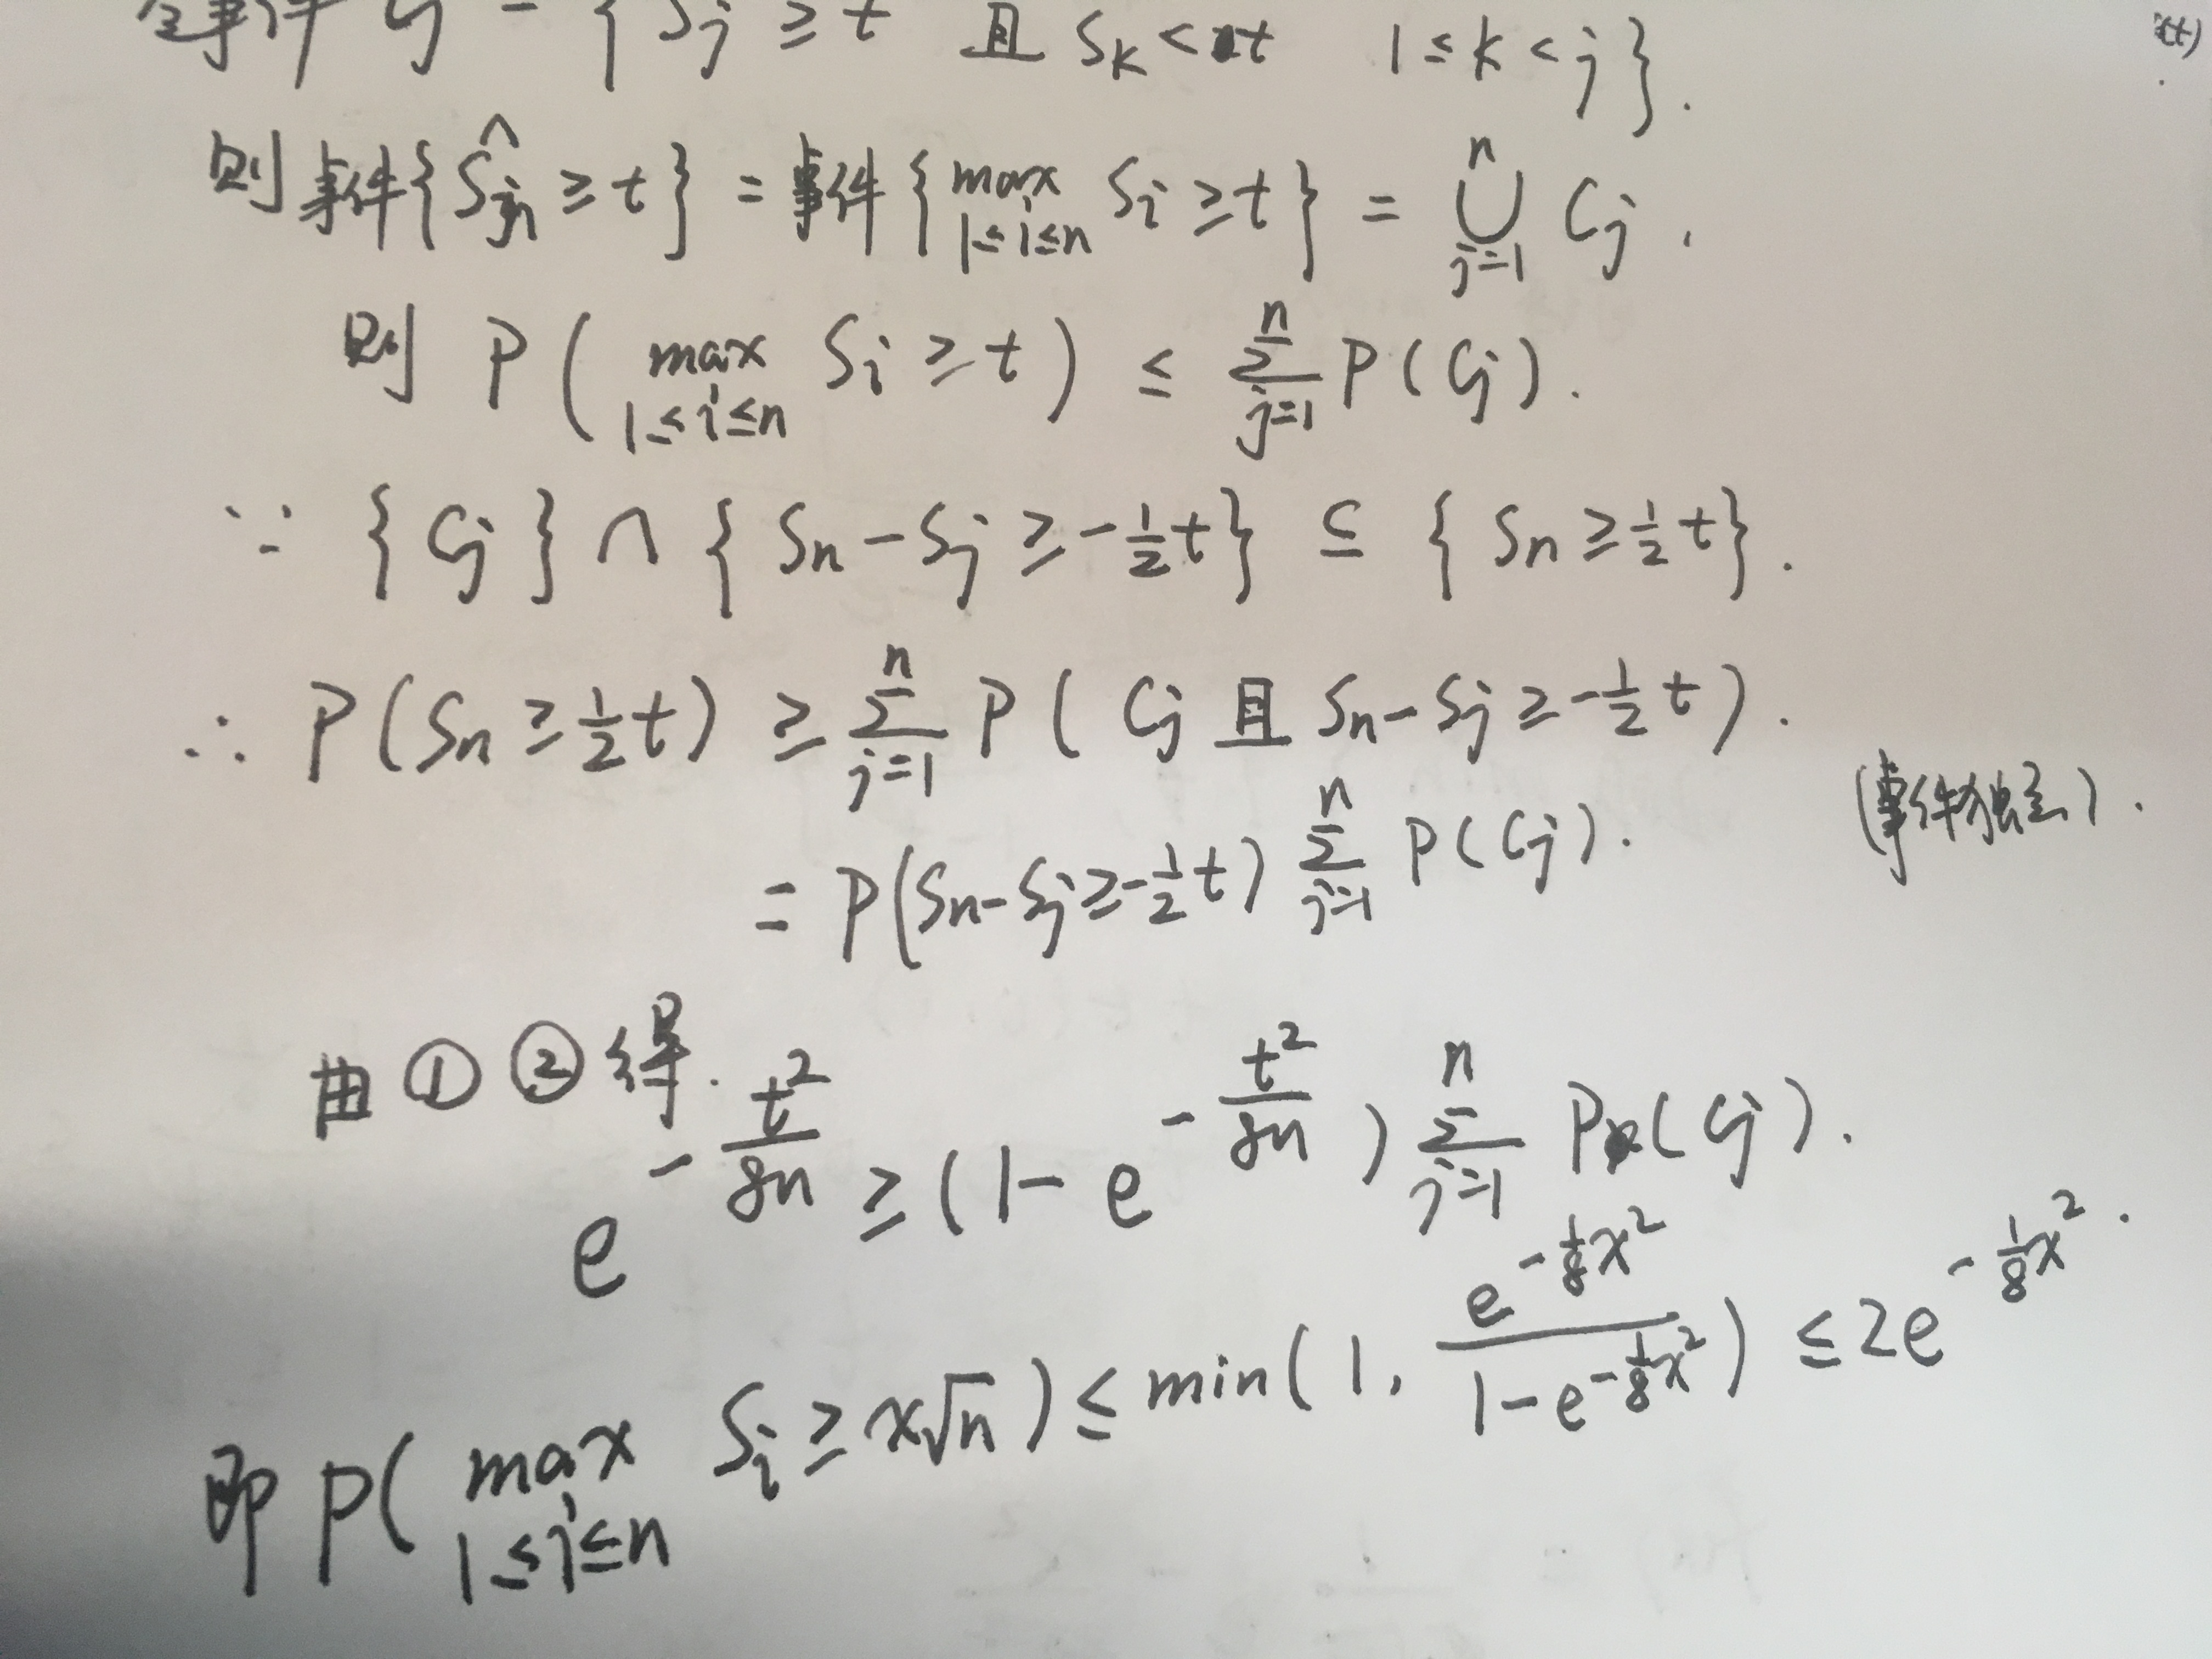 令事件 Cj = { Sj ≥ t 且 Sk < t 1 ≤ k < j }.
则 事件{Ŝn ≥ t} = 事件{ max 1≤i≤n Si ≥ t } = ⋃ j=1 n Cj.
则 P( max 1≤i≤n Si ≥ t ) ≤ ∑ j=1 n P(Cj).
∵ {Cj} ∩ { Sn - Sj ≥ -1/2 t } ⊆ { Sn ≥ 1/2 t }.
∴ P(Sn ≥ 1/2 t) ≥ ∑ j=1 n P( Cj 且 Sn - Sj ≥ -1/2 t ).
= P(Sn - Sj ≥ -1/2 t) ∑ j=1 n P(Cj). (事件独立).
由 ① ② 得.
e^{-t²/8n} ≥ (1 - e^{-t²/8n}) ∑ j=1 n P(Cj).
即 P( max 1≤i≤n Si ≥ x√n ) ≤ min(1, e^{-1/8 x²} / 1 - e^{-1/8 x²}) ≤ 2e^{-1/8 x²}.